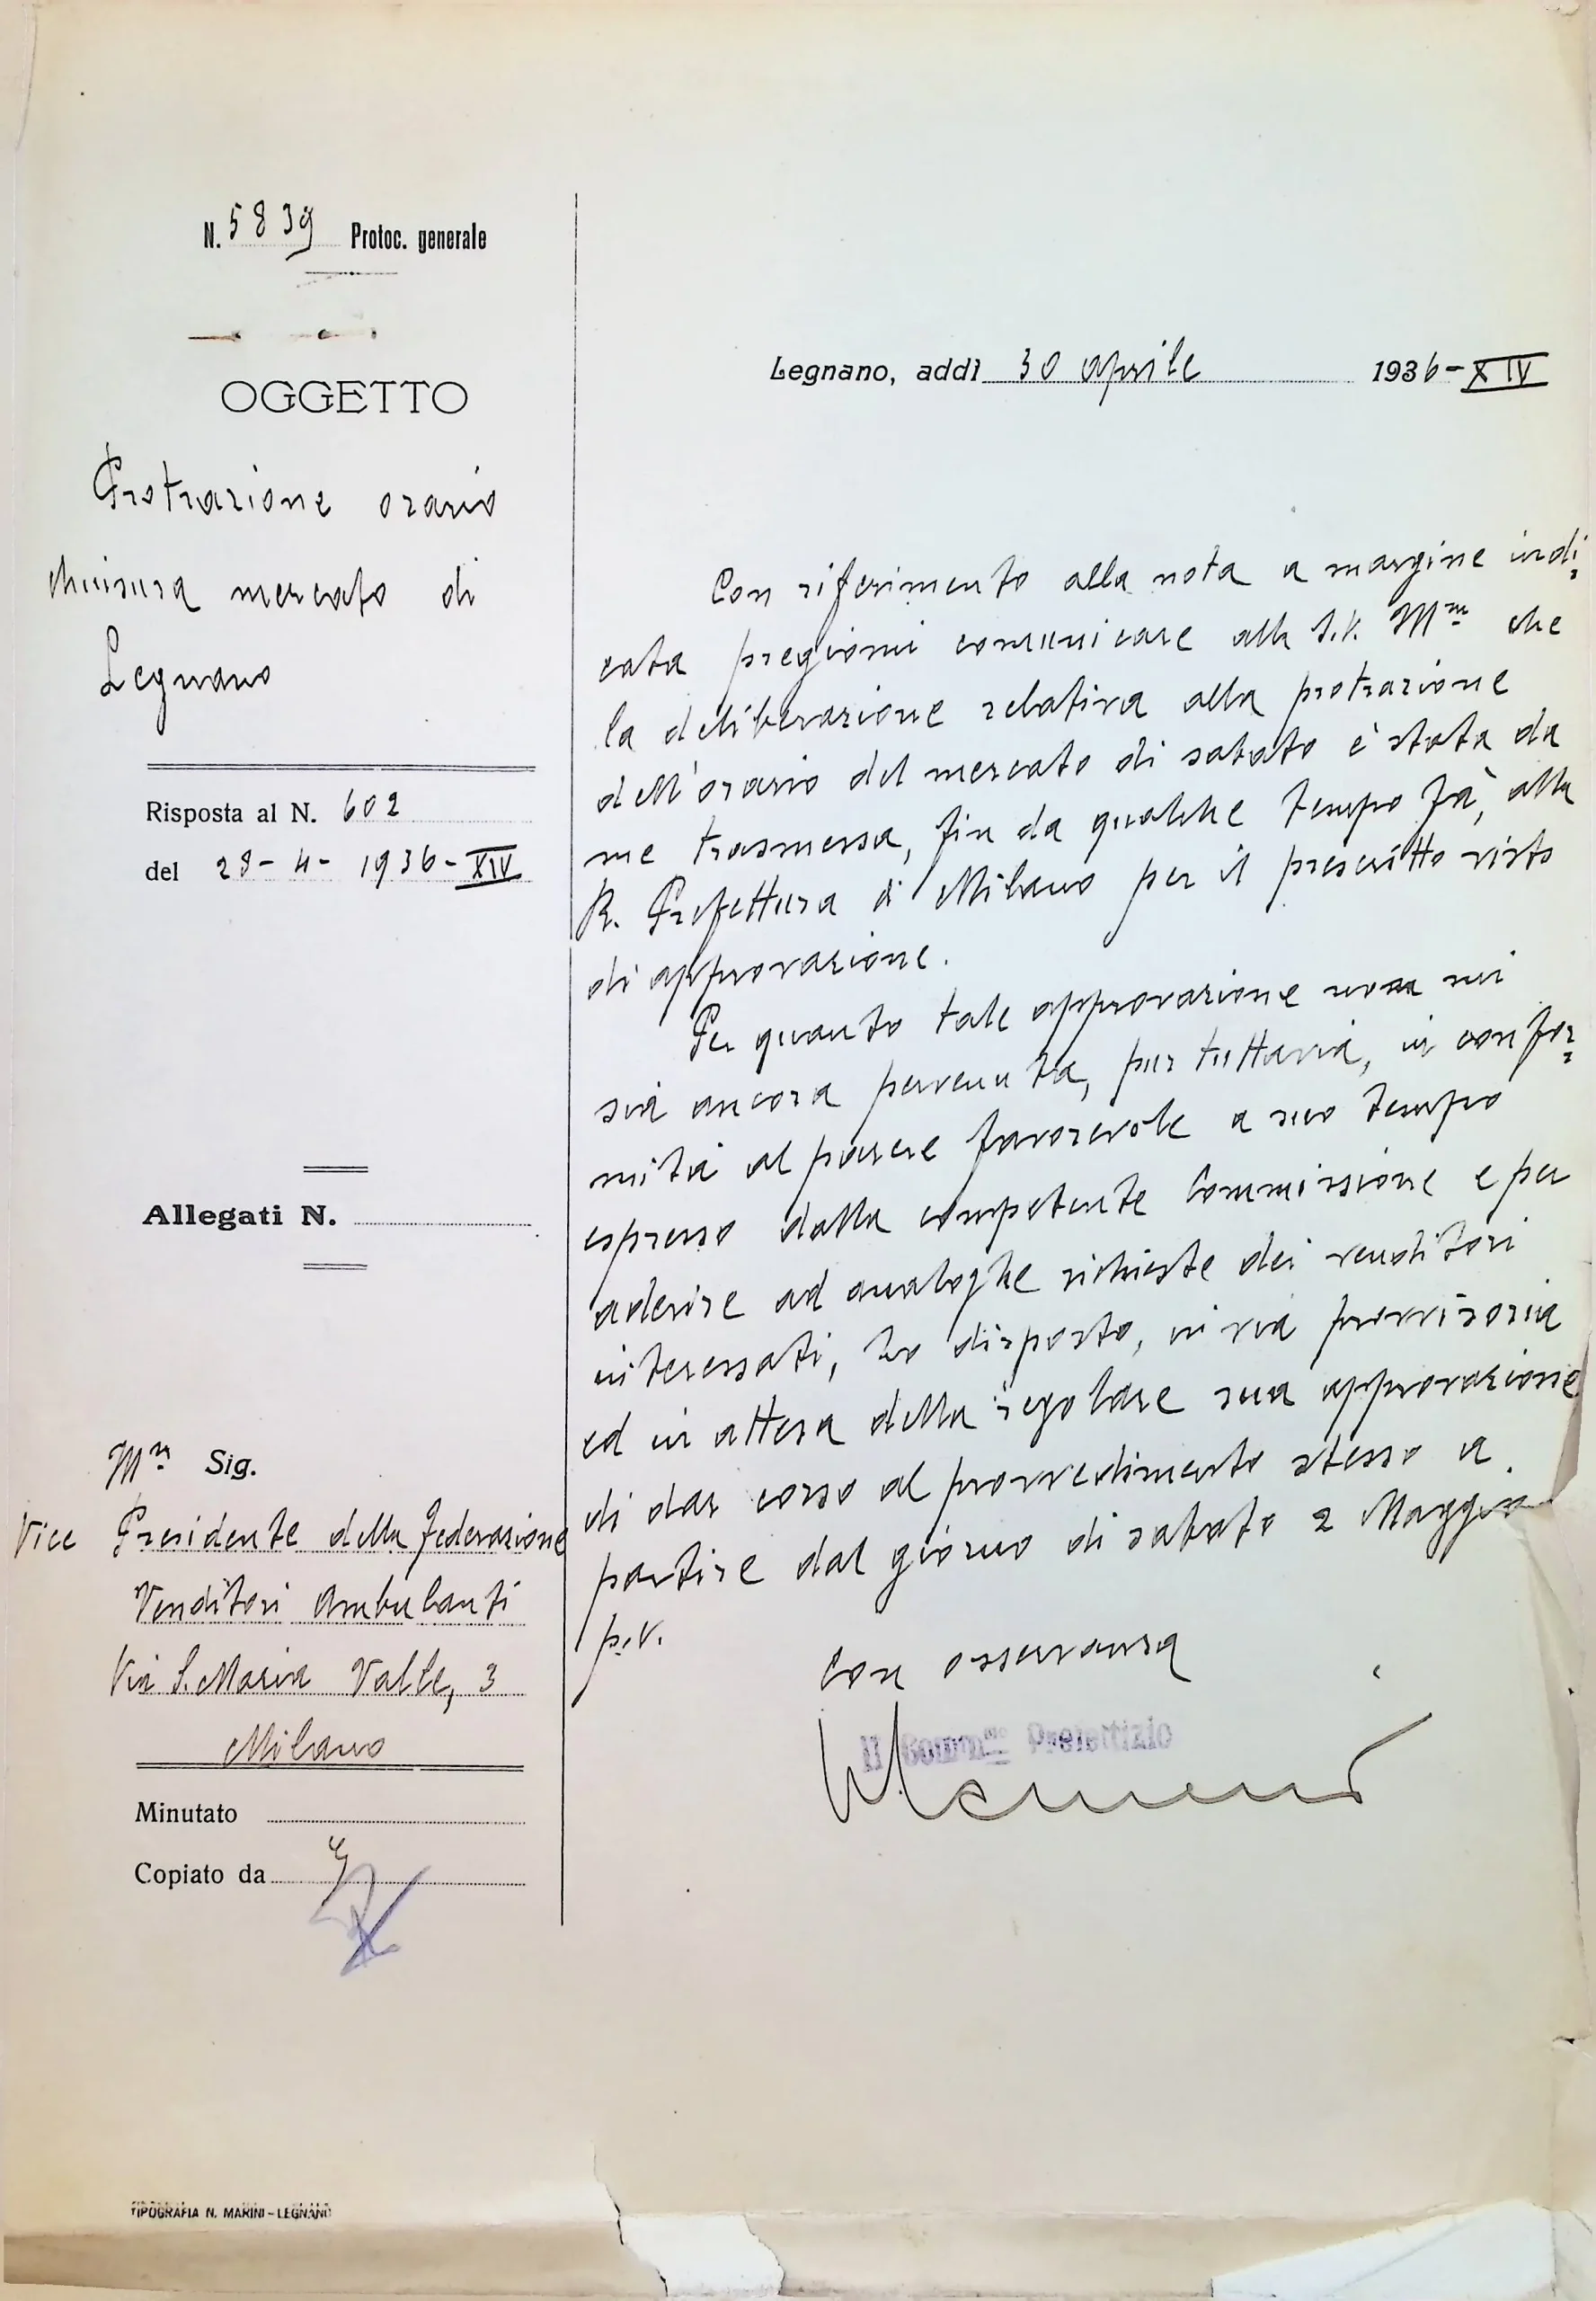 N. 5839 Protoc. generale
OGGETTO
Protrazione orario
chiusura mercato di
Legnano
Risposta al N. 602
del 28-4-1936-XIV
Allegati N.
Mmo Sig.
Vice Presidente della Federazione
Venditori Ambulanti
Via S. Maria Valle, 3
Milano
Minutato
Copiato da
TIPOGRAFIA N. MARINI - LEGNANO
Legnano, addì 30 aprile 1936-XIV
Con riferimento alla nota a margine indi=
cata pregiomi comunicare alla S.V. che
la deliberazione relativa alla protrazione
dell'orario del mercato di sabato è stata da
me trasmessa, fin da qualche tempo fà, alla
R. Prefettura di Milano per il prescritto visto
di approvazione.
Per quanto tale approvazione non mi
sia ancora pervenuta, pur tuttavia, in confor=
mità al parere favorevole a suo tempo
espresso dalla competente Commissione e per
aderire ad analoghe richieste dei venditori
interessati, ho disposto, in via provvisoria
ed in attesa della regolare sua approvazione
di dar corso al provvedimento stesso a
partire dal giorno di sabato 2 Maggio
p.v.
Con osservanza
Il Comm.rio Prefettizio